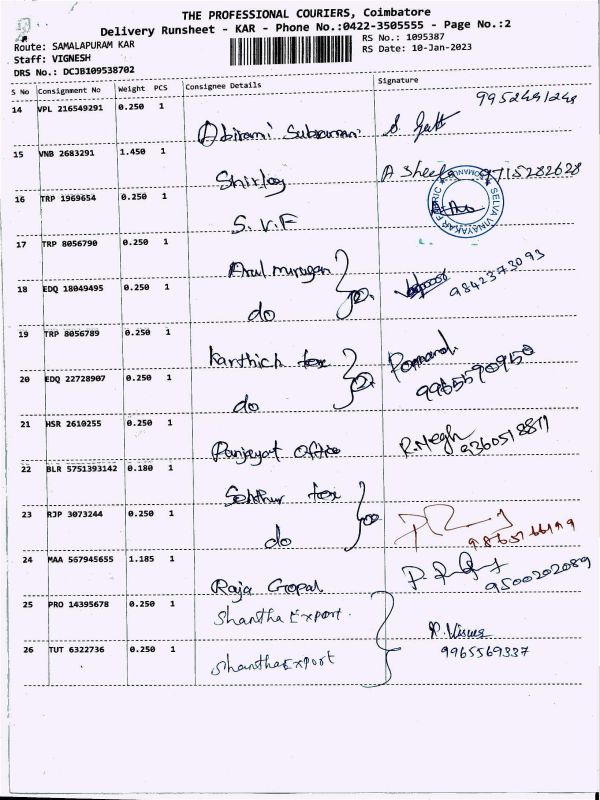 THE PROFESSIONAL COURIERS, Coimbatore
Delivery Runsheet - KAR - Phone No.:0422-3505555 - Page No.:2
Route: SAMALAPURAM KAR
Staff: VIGNESH
DRS No.: DCJB109538702
RS No.: 1095387
RS Date: 10-Jan-2023
S No Consignment No Weight PCS Consignee Details Signature
14 VPL 216549291 0.250 1
15 VNB 2683291 1.450 1 Shirley 9715282628
16 TRP 1969654 0.250 1 S.V.F SELVA VINAYAKAR FABRIC
17 TRP 8056790 0.250 1 Arul murugan
18 EDQ 18049495 0.250 1 do 9842373093
19 TRP 8056789 0.250 1 Karthick tex
20 EDQ 22728907 0.250 1 do 9965590950
21 HSR 2610255 0.250 1 Panjayat office R.Megh
22 BLR 5751393142 0.180 1 tex
23 RJP 3073244 0.250 1 do
24 MAA 567945655 1.185 1 Raja Gopal 9500202089
25 PRO 14395678 0.250 1 Shantha Export.
26 TUT 6322736 0.250 1 Shantha Export 9965569337